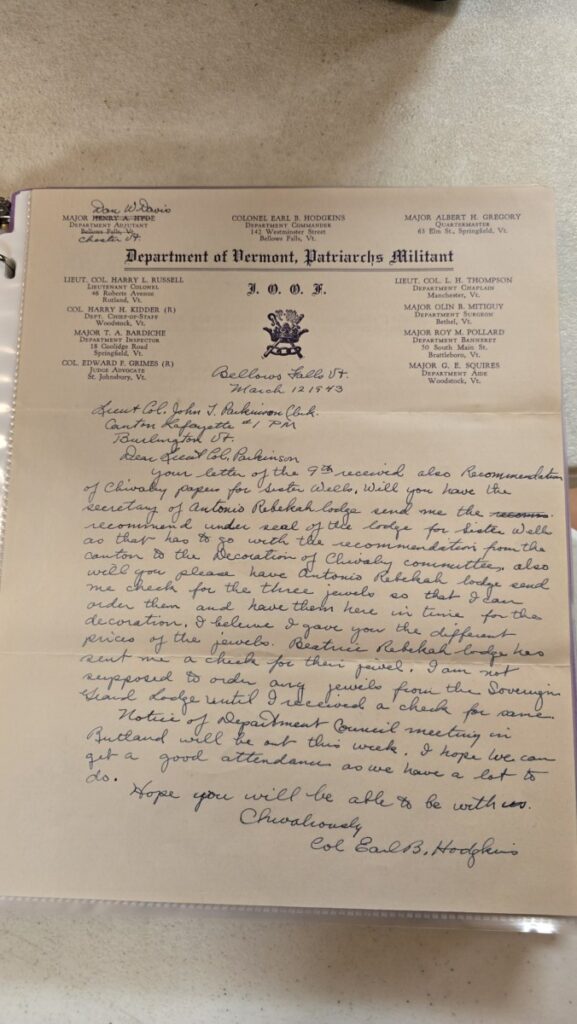 Don W. Davis
MAJOR HENRY A. HYDE
DEPARTMENT ADJUTANT
Bellows Falls, Vt.
Chester Vt.
COLONEL EARL B. HODGKINS
DEPARTMENT COMMANDER
142 Westminster Street
Bellows Falls, Vt.
MAJOR ALBERT H. GREGORY
QUARTERMASTER
63 Elm St., Springfield, Vt.
Department of Vermont, Patriarchs Militant
I. O. O. F.
LIEUT. COL. HARRY L. RUSSELL
LIEUTENANT COLONEL
46 Roberts Avenue
Rutland, Vt.
COL. HARRY H. KIDDER (R)
DEPT. CHIEF-OF-STAFF
Woodstock, Vt.
MAJOR T. A. BARDICHE
DEPARTMENT INSPECTOR
18 Coolidge Road
Springfield, Vt.
COL. EDWARD F. GRIMES (R)
JUDGE ADVOCATE
St. Johnsbury, Vt.
LIEUT. COL. L. H. THOMPSON
DEPARTMENT CHAPLAIN
Manchester, Vt.
MAJOR OLIN B. MITIGUY
DEPARTMENT SURGEON
Bethel, Vt.
MAJOR ROY M. POLLARD
DEPARTMENT BANNERET
50 South Main St.
Brattleboro, Vt.
MAJOR G. E. SQUIRES
DEPARTMENT AIDE
Woodstock, Vt.
Bellows Falls Vt.
March 12 1943
Lieut Col. John T. Parkinson Clerk.
Canton Lafayette #1 PM
Burlington Vt.
Dear Lieut Col. Parkinson
Your letter of the 9th received also Recommendation
of Chivalry papers for Sister Wells. Will you have the
secretary of Antonio Rebekah lodge send me the recomm
recommend under seal of the lodge for Sister Wells
as that has to go with the recommendation from the
canton to the Decoration of Chivalry committee, also
will you please have Antonio Rebekah lodge send
me check for the three jewels so that I can
order them and have them here in time for the
decoration. I believe I gave you the different
prices of the jewels. Beatrice Rebekah lodge has
sent me a check for their jewel. I am not
supposed to order any jewels from the Sovereign
Grand Lodge until I received a check for same.
Notice of Department Council meeting in
Rutland will be out this week. I hope we can
get a good attendance as we have a lot to
do.
Hope you will be able to be with us.
Chivalrously
Col Earl B. Hodgkins